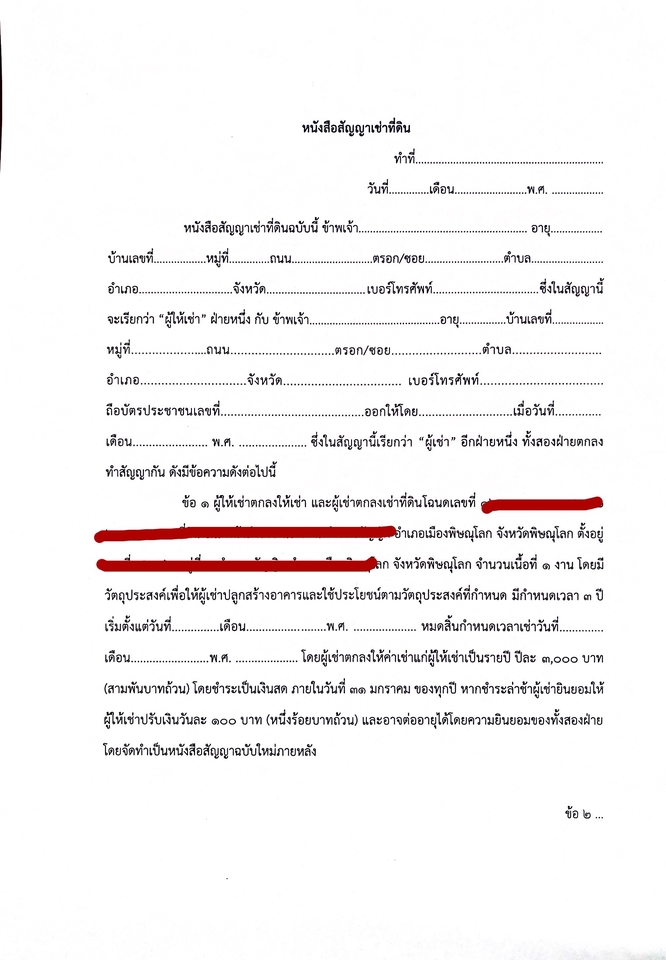 หนังสือสัญญาเช่าที่ดิน
ทำที่...............................................................
วันที่..............เดือน.........................พ.ศ. ..................
หนังสือสัญญาเช่าที่ดินฉบับนี้ ข้าพเจ้า......................................................... อายุ..................
บ้านเลขที่..................หมู่ที่..............ถนน...........................ตรอก/ซอย...........................ตำบล.........................
อำเภอ................................จังหวัด..................................เบอร์โทรศัพท์....................................ซึ่งในสัญญานี้
จะเรียกว่า “ผู้ให้เช่า” ฝ่ายหนึ่ง กับ ข้าพเจ้า.............................................อายุ................บ้านเลขที่..................
หมู่ที่......................ถนน..............................ตรอก/ซอย..........................ตำบล..........................
อำเภอ...........................จังหวัด.............................. เบอร์โทรศัพท์................................
ถือบัตรประชาชนเลขที่.................................................ออกให้โดย................................เมื่อวันที่................
เดือน.......................... พ.ศ. ....................... ซึ่งในสัญญานี้เรียกว่า “ผู้เช่า” อีกฝ่ายหนึ่ง ทั้งสองฝ่ายตกลง
ทำสัญญากัน ดังมีข้อความดังต่อไปนี้
ข้อ ๑ ผู้ให้เช่าตกลงให้เช่า และผู้เช่าตกลงเช่าที่ดินโฉนดเลขที่
อำเภอเมืองพิษณุโลก จังหวัดพิษณุโลก ตั้งอยู่
จังหวัดพิษณุโลก จำนวนเนื้อที่ ๑ งาน โดยมี
วัตถุประสงค์เพื่อให้ผู้เช่าปลูกสร้างอาคารและใช้ประโยชน์ตามวัตถุประสงค์ที่กำหนด มีกำหนดเวลา ๓ ปี
เริ่มตั้งแต่วันที่................เดือน...........................พ.ศ. ...................... หมดสิ้นกำหนดเวลาเช่าวันที่...............
เดือน...........................พ.ศ. ...................... โดยผู้เช่าตกลงให้ค่าเช่าแก่ผู้ให้เช่าเป็นรายปี ปีละ ๓,๐๐๐ บาท
(สามพันบาทถ้วน) โดยชำระเป็นเงินสด ภายในวันที่ ๓๑ มกราคม ของทุกปี หากชำระล่าช้าผู้เช่ายินยอมให้
ผู้ให้เช่าปรับเงินวันละ ๑๐๐ บาท (หนึ่งร้อยบาทถ้วน) และอาจต่ออายุได้โดยความยินยอมของทั้งสองฝ่าย
โดยจัดทำเป็นหนังสือสัญญาฉบับใหม่ภายหลัง
ข้อ ๒ ...